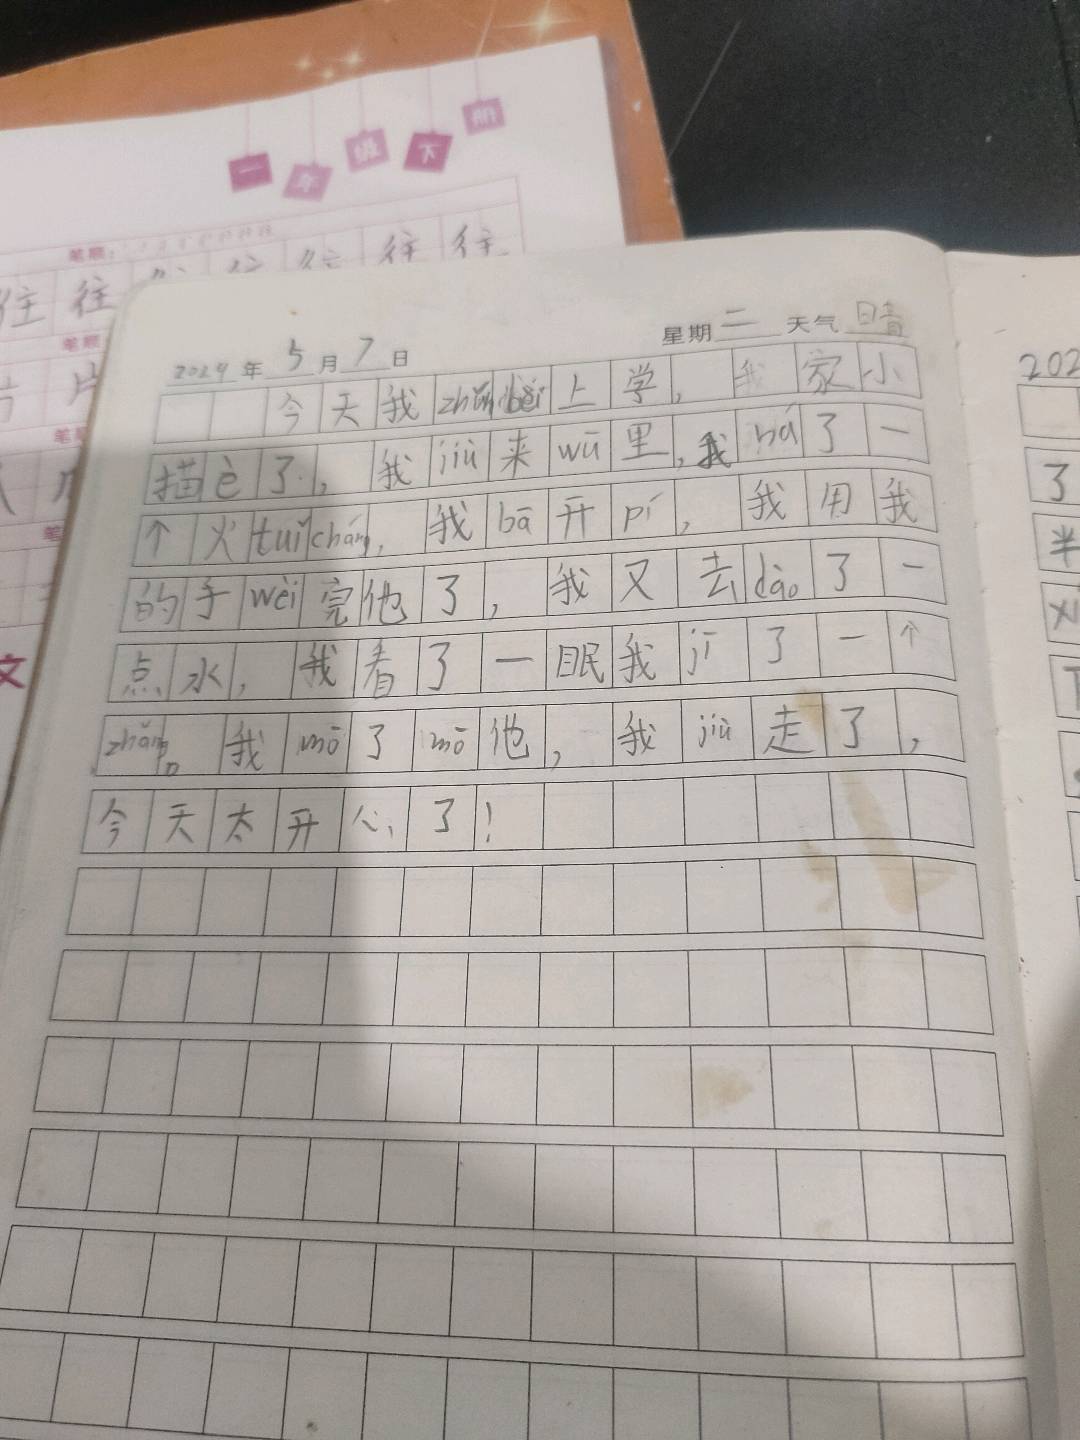 一年级下册
笔顺:
往 往 往 往 往
笔顺
片
笔顺
笔
文
2024 年 5 月 7 日 星期 二 天气 晴
今天我zhǔn bèi上学，我家小
描è了，我jiù来wū里，我ná了一
个火tuǐcháng，我bā开pí，我用我
的手wèi完他了，我又去dào了一
点水，我看了一眠我jī了一个
zhǎng。我mō了mō他，我jiù走了，
今天太开心了！
202
了
半